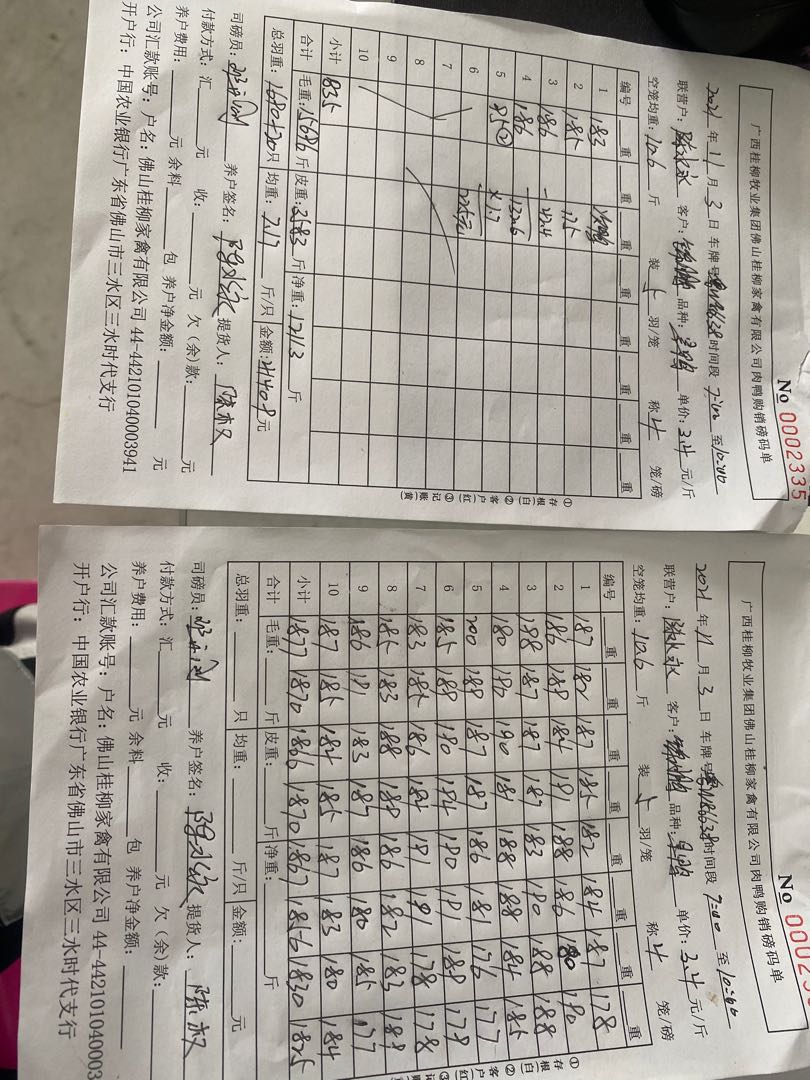 广西桂柳牧业集团佛山桂柳家禽有限公司肉鸭购销磅码单
No 0002335
2021年11月3日 车牌号 时间段7:00至10:00
联营户: 客户: 品种: 单价:3.4元/斤
空笼均重:10.6斤 装 羽/笼 称4笼/磅
编号 重 重 重 重 重 重 重 重
1 183
2 185 175
3 186 - 42.4
4 180 132.6
5 85② × 1.7
6 225元
7
8
9
10
小计 835
合计 毛重:15696斤 皮重:3583斤 净重:12113斤
总羽重: 只 均重:7.17斤/只 金额:41409元
司磅员: 养户签名: 提货人:
付款方式:汇 元 收: 元 欠(余)款: 元
养户费用: 元 余料 包 养户净金额: 元
公司汇款账号:户名:佛山桂柳家禽有限公司 44-442101040003941
开户行:中国农业银行广东省佛山市三水区三水时代支行
①存根(白)②客户(红)③记账(黄)
广西桂柳牧业集团佛山桂柳家禽有限公司肉鸭购销磅码单
No 00023
2021年11月3日 车牌号 时间段7:00至10:00
联营户: 客户: 品种: 单价:3.4元/斤
空笼均重:10.6斤 装 羽/笼 称4笼/磅
编号 重 重 重 重 重 重 重 重
1 187 182 187 185 182 184 187 178
2 186 188 184 191 188 186 180 190
3 188 187 187 187 183 190 188 188
4 180 190 190 181 188 188 184 185
5 200 188 187 187 186 181 176 177
6 185 188 190 184 190 191 188 178
7 183 185 186 182 191 191 178 178
8 185 183 188 188 186 182 183 188
9 186 191 183 187 186 180 185 177
10 187 185 184 185 187 183 180 184
小计 1877 1870 1866 1870 1867 1856 1830 1825
合计 毛重: 斤 皮重: 斤 净重: 斤
总羽重: 只 均重: 斤/只 金额: 元
司磅员: 养户签名: 提货人:
付款方式:汇 元 收: 元 欠(余)款:
养户费用: 元 余料 包 养户净金额:
公司汇款账号:户名:佛山桂柳家禽有限公司 44-442101040003
开户行:中国农业银行广东省佛山市三水区三水时代支行
①存根(白)②客户(红)③记